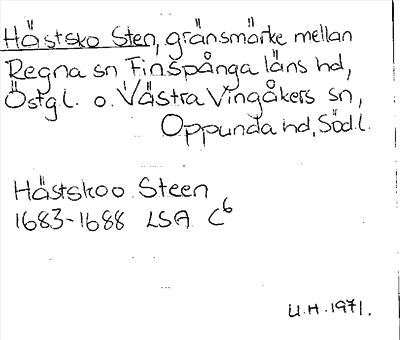 Hästsko Sten, gränsmärke mellan
Regna sn Finspånga läns hd,
Östg.l. o. Västra Vingåkers sn,
Oppunda hd, Söd.l.
Hästskoo Steen
1683-1688 LSA C6
U.H. 1971.